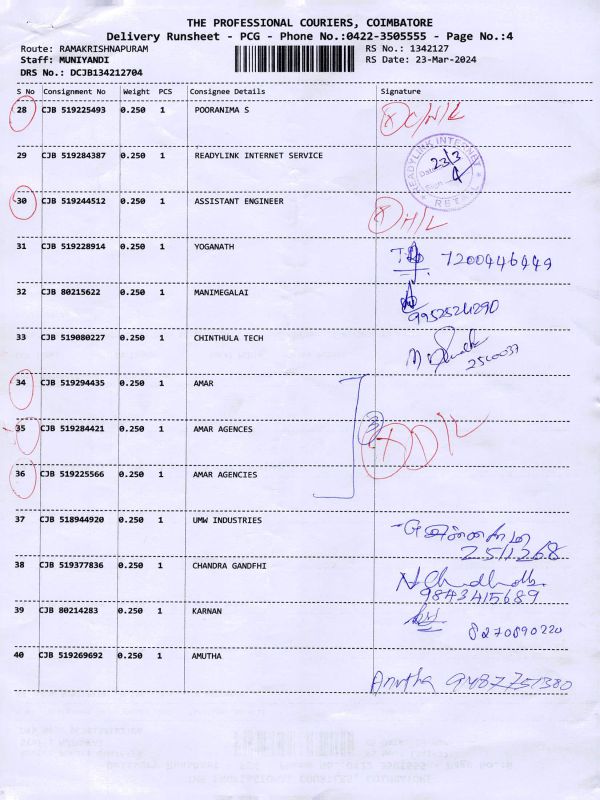 THE PROFESSIONAL COURIERS, COIMBATORE
Delivery Runsheet - PCG - Phone No.:0422-3505555 - Page No.:4
Route: RAMAKRISHNAPURAM RS No.: 1342127
Staff: MUNIYANDI RS Date: 23-Mar-2024
DRS No.: DCJB134212704
S No Consignment No Weight PCS Consignee Details Signature
28 CJB 519225493 0.250 1 POORANIMA S
29 CJB 519284387 0.250 1 READYLINK INTERNET SERVICE
READYLINK INTERNET
Date 23/3
RETAIL
30 CJB 519244512 0.250 1 ASSISTANT ENGINEER
31 CJB 519228914 0.250 1 YOGANATH
7200446949
32 CJB 80215622 0.250 1 MANIMEGALAI
9952524290
33 CJB 519080227 0.250 1 CHINTHULA TECH
2560037
34 CJB 519294435 0.250 1 AMAR
35 CJB 519284421 0.250 1 AMAR AGENCES
3
36 CJB 519225566 0.250 1 AMAR AGENCIES
37 CJB 518944920 0.250 1 UMW INDUSTRIES
251268
38 CJB 519377836 0.250 1 CHANDRA GANDFHI
9843415689
39 CJB 80214283 0.250 1 KARNAN
8270890220
40 CJB 519269692 0.250 1 AMUTHA
Amutha 9487751380